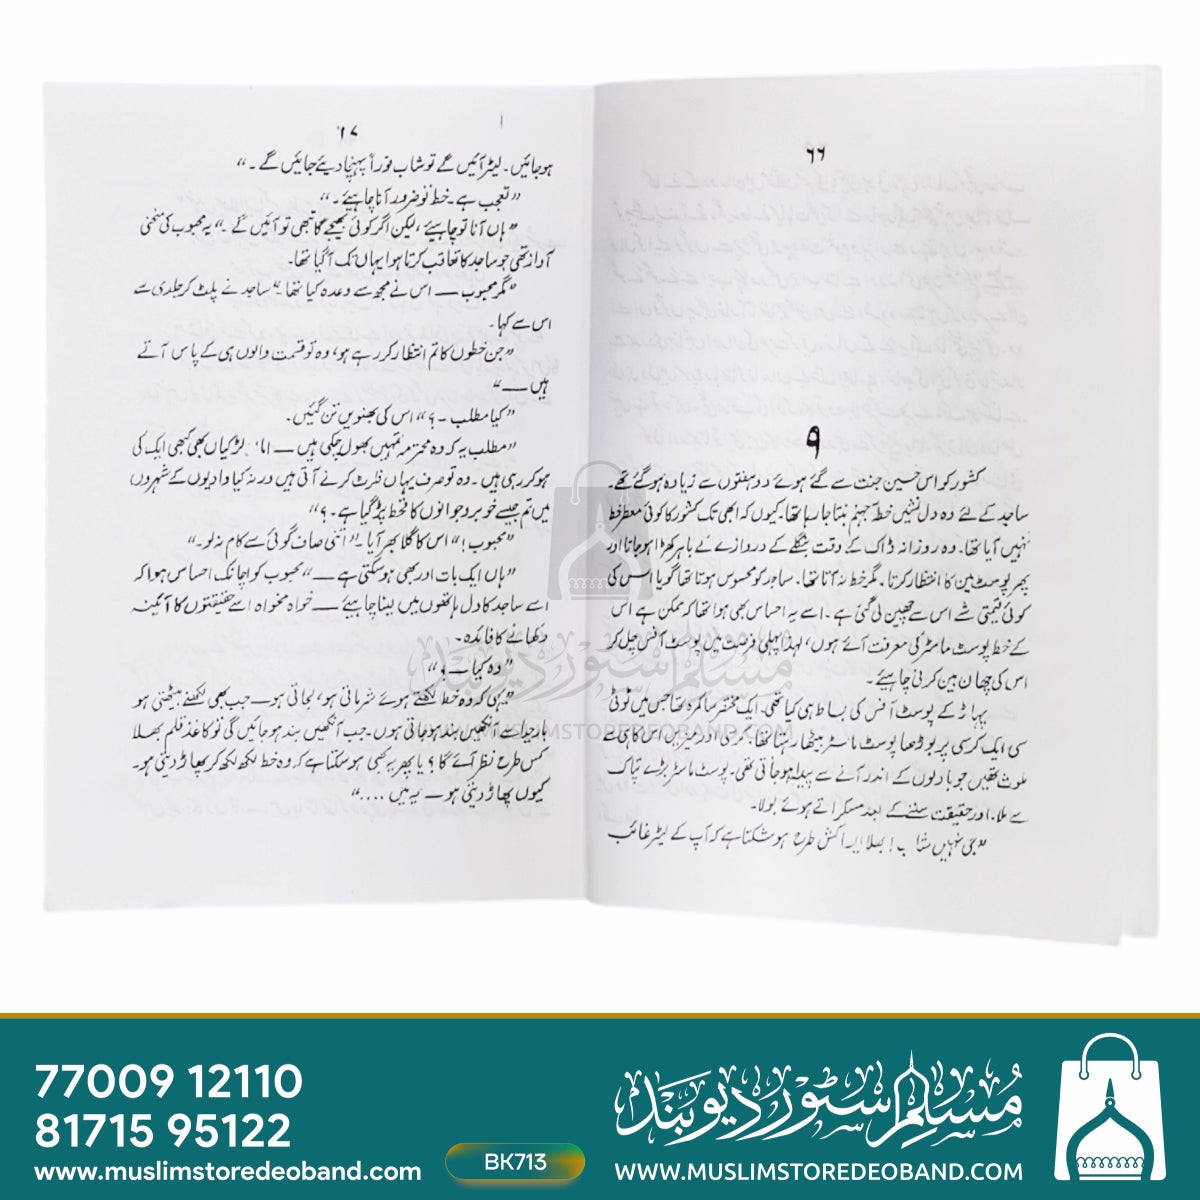 ۶۶
۹
کشور کو اس حسین جنت سے گئے ہوئے دو مہنتوں سے زیادہ ہو گئے تھے۔
ساجد کے لئے وہ دل نشیں خطہ جہنم بنتا جا رہا تھا۔ کیوں کہ ابھی تک کشور کا کوئی معطر خط
نہیں آیا تھا۔ وہ روزانہ ڈاک کے وقت بنگلے کے دروازے کے باہر کھڑا ہو جاتا اور
پھر پوسٹ مین کا انتظار کرتا۔ مگر خط نہ آتا تھا۔ ساجد کو محسوس ہوتا تھا گویا اس کی
کوئی قیمتی شے اس سے چھین لی گئی ہے۔ اسے یہ احساس بھی ہوا تھا کہ ممکن ہے اس
کے خط پوسٹ ماسٹر کی معرفت آئے ہوں، لہٰذا پہلی فرصت میں پوسٹ آفس چل کر
اس کی چھان بین کرنی چاہیے۔
پہاڑ کے پوسٹ آفس کی بساط ہی کیا تھی۔ ایک مختصر سا کمرہ تھا جس میں ٹوٹی
سی ایک کرسی پر بوڑھا پوسٹ ماسٹر بیٹھا رہتا تھا۔ کرسی اور میز یں اس کاہی سے
ملوث تھیں جو بادلوں کے اندر آنے سے پیدا ہو جاتی تھی۔ پوسٹ ماسٹر بڑے تپاک
سے ملا، اور حقیقت سننے کے بعد مسکراتے ہوئے بولا۔
”جی نہیں شاب! بھلا ایسا کس طرح ہو شکتا ہے کہ آپ کے لیٹر غائب
۶۷
ہو جائیں۔ لیٹر آئیں گے تو شاب فوراً پہنچا دیئے جائیں گے۔“
”تعجب ہے۔ خط تو ضرور آنا چاہیئے۔“
”ہاں آنا تو چاہیئے، لیکن اگر کوئی بھیجے گا تبھی تو آئیں گے۔“ یہ محبوب کی منحنی
آواز تھی جو ساجد کا تعاقب کرتا ہوا یہاں تک آ گیا تھا۔
”مگر محبوب — اس نے مجھ سے وعدہ کیا تھا“ ساجد نے پلٹ کر جلدی سے
اس سے کہا۔
”جن خطوں کا تم انتظار کر رہے ہو، وہ تو قسمت والوں ہی کے پاس آتے
ہیں —“
”کیا مطلب۔؟“ اس کی بھنویں تن گئیں۔
”مطلب یہ کہ وہ محترمہ تمہیں بھول چکی ہیں — اماں لڑکیاں بھی کبھی ایک کی
ہو کر رہی ہیں۔ وہ تو صرف یہاں فلرٹ کرنے آتی ہیں ورنہ کیا وادیوں کے شہروں
میں تم جیسے خوبرو جوانوں کا قحط پڑ گیا ہے۔؟“
”محبوب!“ اس کا گلا بھر آیا۔ ”اتنی صاف گوئی سے کام نہ لو۔“
”ہاں ایک بات اور بھی ہو سکتی ہے —“ محبوب کو اچانک احساس ہوا کہ
اسے ساجد کا دل ہاتھوں میں لینا چاہیئے — خواہ مخواہ اسے حقیقتوں کا آئینہ
دکھانے کا فائدہ۔
”وہ کیا —؟“
”یہی کہ وہ خط لکھتے ہوئے شرماتی ہو، لجاتی ہو — جب بھی لکھنے بیٹھتی ہو
بارِ حیا سے آنکھیں بند ہو جاتی ہوں۔ جب آنکھیں بند ہو جائیں گی تو کاغذ قلم بھلا
کس طرح نظر آئے گا؟ یا پھر یہ بھی ہو سکتا ہے کہ وہ خط لکھ لکھ کر پھاڑ دیتی ہو۔
کیوں پھاڑ دیتی ہو — یہ میں ....“
مسلم سٹور دیوبند
WWW.MUSLIMSTOREDEOBAND.COM
77009 12110
81715 95122
www.muslimstoredeoband.com
BK713
مسلم سٹور دیوبند
WWW.MUSLIMSTOREDEOBAND.COM